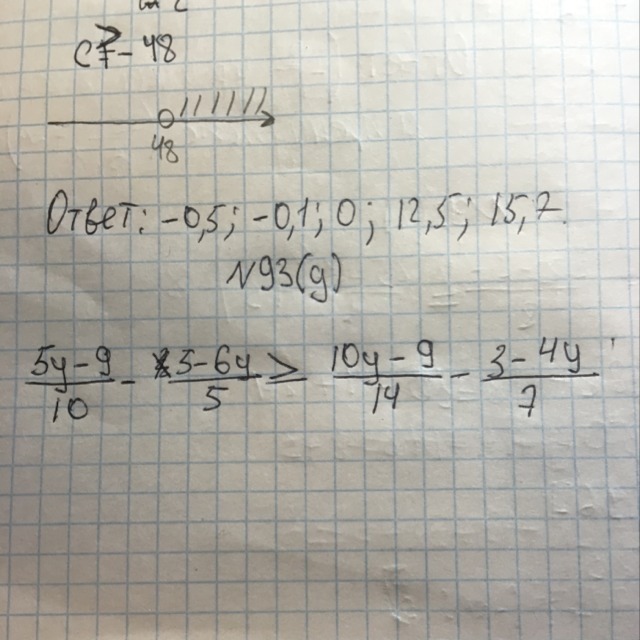 c > -48
48
Ответ: -0,5; -0,1; 0; 12,5; 15,7.
N93(д)
5y-9/10 - 5-6y/5 > 10y-9/14 - 3-4y/7